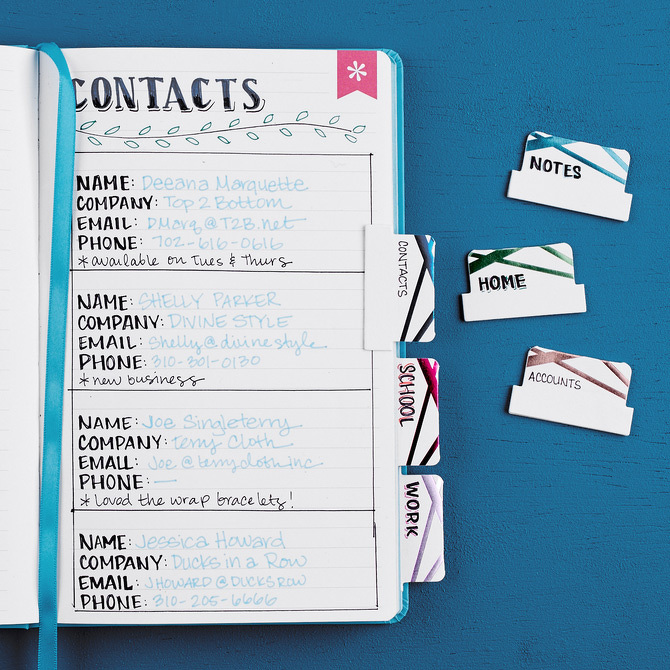 CONTACTS
NAME: Deeana Marquette
COMPANY: Top 2 Bottom
EMAIL: DMarq@T2B.net
PHONE: 702-616-0616
*available on Tues & Thurs
NAME: SHELLY PARKER
COMPANY: DIVINE STYLE
EMAIL: Shelly@divinestyle
PHONE: 310-301-0130
*new business
NAME: Joe Singleterry
COMPANY: Terry Cloth
EMAIL: Joe@terryclothinc
PHONE: —
*Loved the wrap bracelets!
NAME: Jessica Howard
COMPANY: Ducks in a Row
EMAIL: JHOWARD@DUCKSROW
PHONE: 310-205-6666
CONTACTS
SCHOOL
WORK
NOTES
HOME
ACCOUNTS